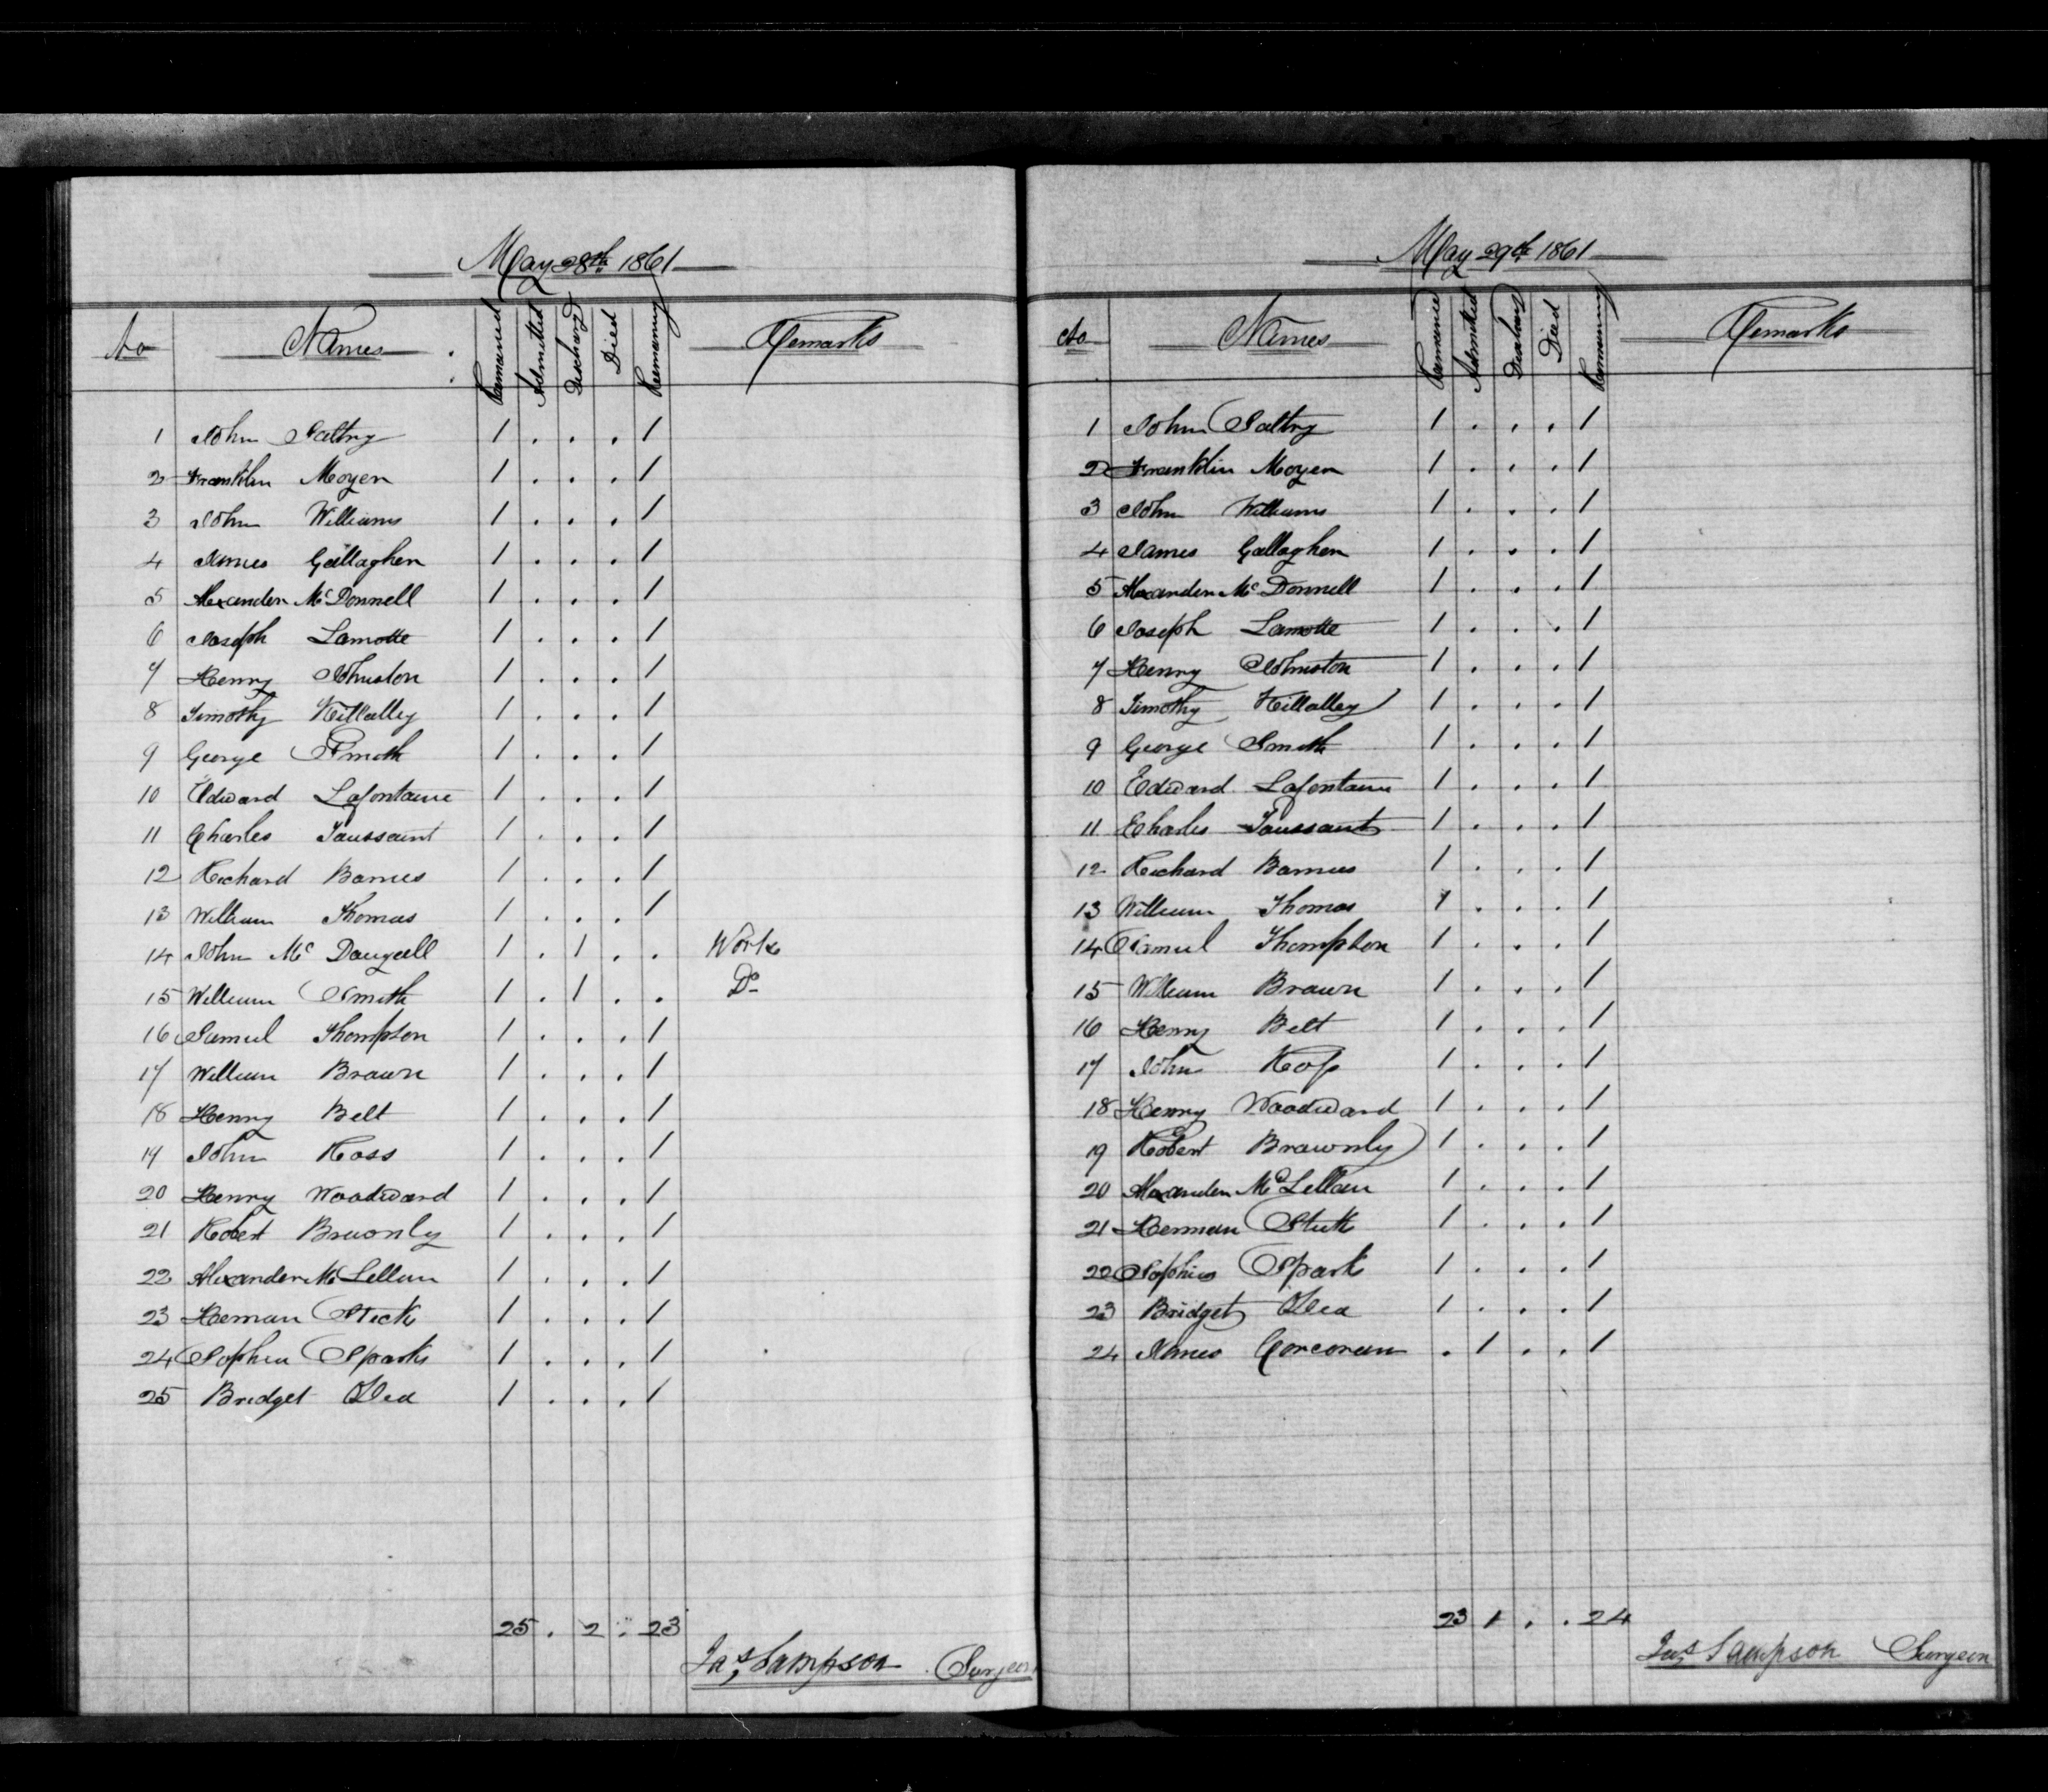 May 28th 1861
No Names Remained Admitted Discharg Died Remaining Remarks
1 John Saltry 1 . . . 1
2 Franklin Moyer 1 . . . 1
3 John Williams 1 . . . 1
4 James Gallagher 1 . . . 1
5 Alexander Mc Donnell 1 . . . 1
6 Joseph Lamotte 1 . . . 1
7 Henry Johnston 1 . . . 1
8 Timothy Killalley 1 . . . 1
9 George Smith 1 . . . 1
10 Edward Lafontaine 1 . . . 1
11 Charles Toussaint 1 . . . 1
12 Richard Barnes 1 . . . 1
13 William Thomas 1 . . . 1
14 John Mc Dougall 1 . 1 . . Work
15 William Smith 1 . 1 . . Do
16 Samuel Thompson 1 . . . 1
17 William Brown 1 . . . 1
18 Henry Belt 1 . . . 1
19 John Ross 1 . . . 1
20 Henry Woodward 1 . . . 1
21 Robert Brownly 1 . . . 1
22 Alexander Mc Lellan 1 . . . 1
23 Herman Stuck 1 . . . 1
24 Sophia Sparks 1 . . . 1
25 Bridget ODea 1 . . . 1
25 . 2 . 23
Jas Sampson Surgeon
May 29th 1861
No Names Remained Admitted Discharg Died Remaining Remarks
1 John Saltry 1 . . . 1
2 Franklin Moyer 1 . . . 1
3 John Williams 1 . . . 1
4 James Gallagher 1 . . . 1
5 Alexander Mc Donnell 1 . . . 1
6 Joseph Lamotte 1 . . . 1
7 Henry Johnston 1 . . . 1
8 Timothy Killalley 1 . . . 1
9 George Smith 1 . . . 1
10 Edward Lafontaine 1 . . . 1
11 Charles Toussaint 1 . . . 1
12 Richard Barnes 1 . . . 1
13 William Thomas 1 . . . 1
14 Samuel Thompson 1 . . . 1
15 William Brown 1 . . . 1
16 Henry Belt 1 . . . 1
17 John Ross 1 . . . 1
18 Henry Woodward 1 . . . 1
19 Robert Brownly 1 . . . 1
20 Alexander Mc Lellan 1 . . . 1
21 Herman Stuck 1 . . . 1
22 Sophia Spark 1 . . . 1
23 Bridget ODea 1 . . . 1
24 James Corcoran . 1 . . 1
23 1 . . 24
Jas Sampson Surgeon